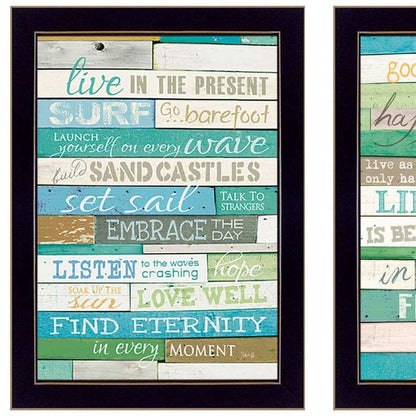 live IN THE PRESENT
SURF Go...barefoot
LAUNCH
yourself on every wave
build SANDCASTLES
set sail TALK TO
STRANGERS
EMBRACE THE
DAY
LISTEN to the waves
crashing hope
SOAK UP THE
sun LOVE WELL
FIND ETERNITY
in every MOMENT
goo
ha
live as
only ha
LI
IS BE
in
F